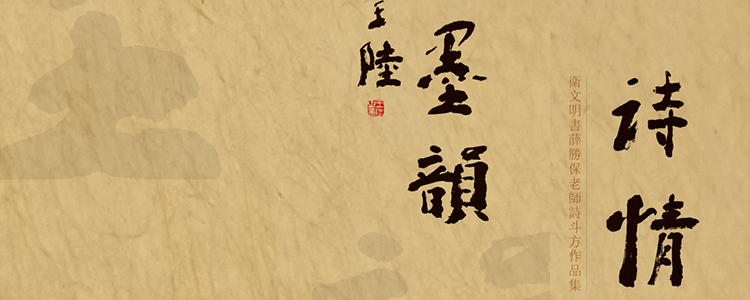 詩情
衛文明書薛勝保老師詩斗方作品集
墨韻
王陸